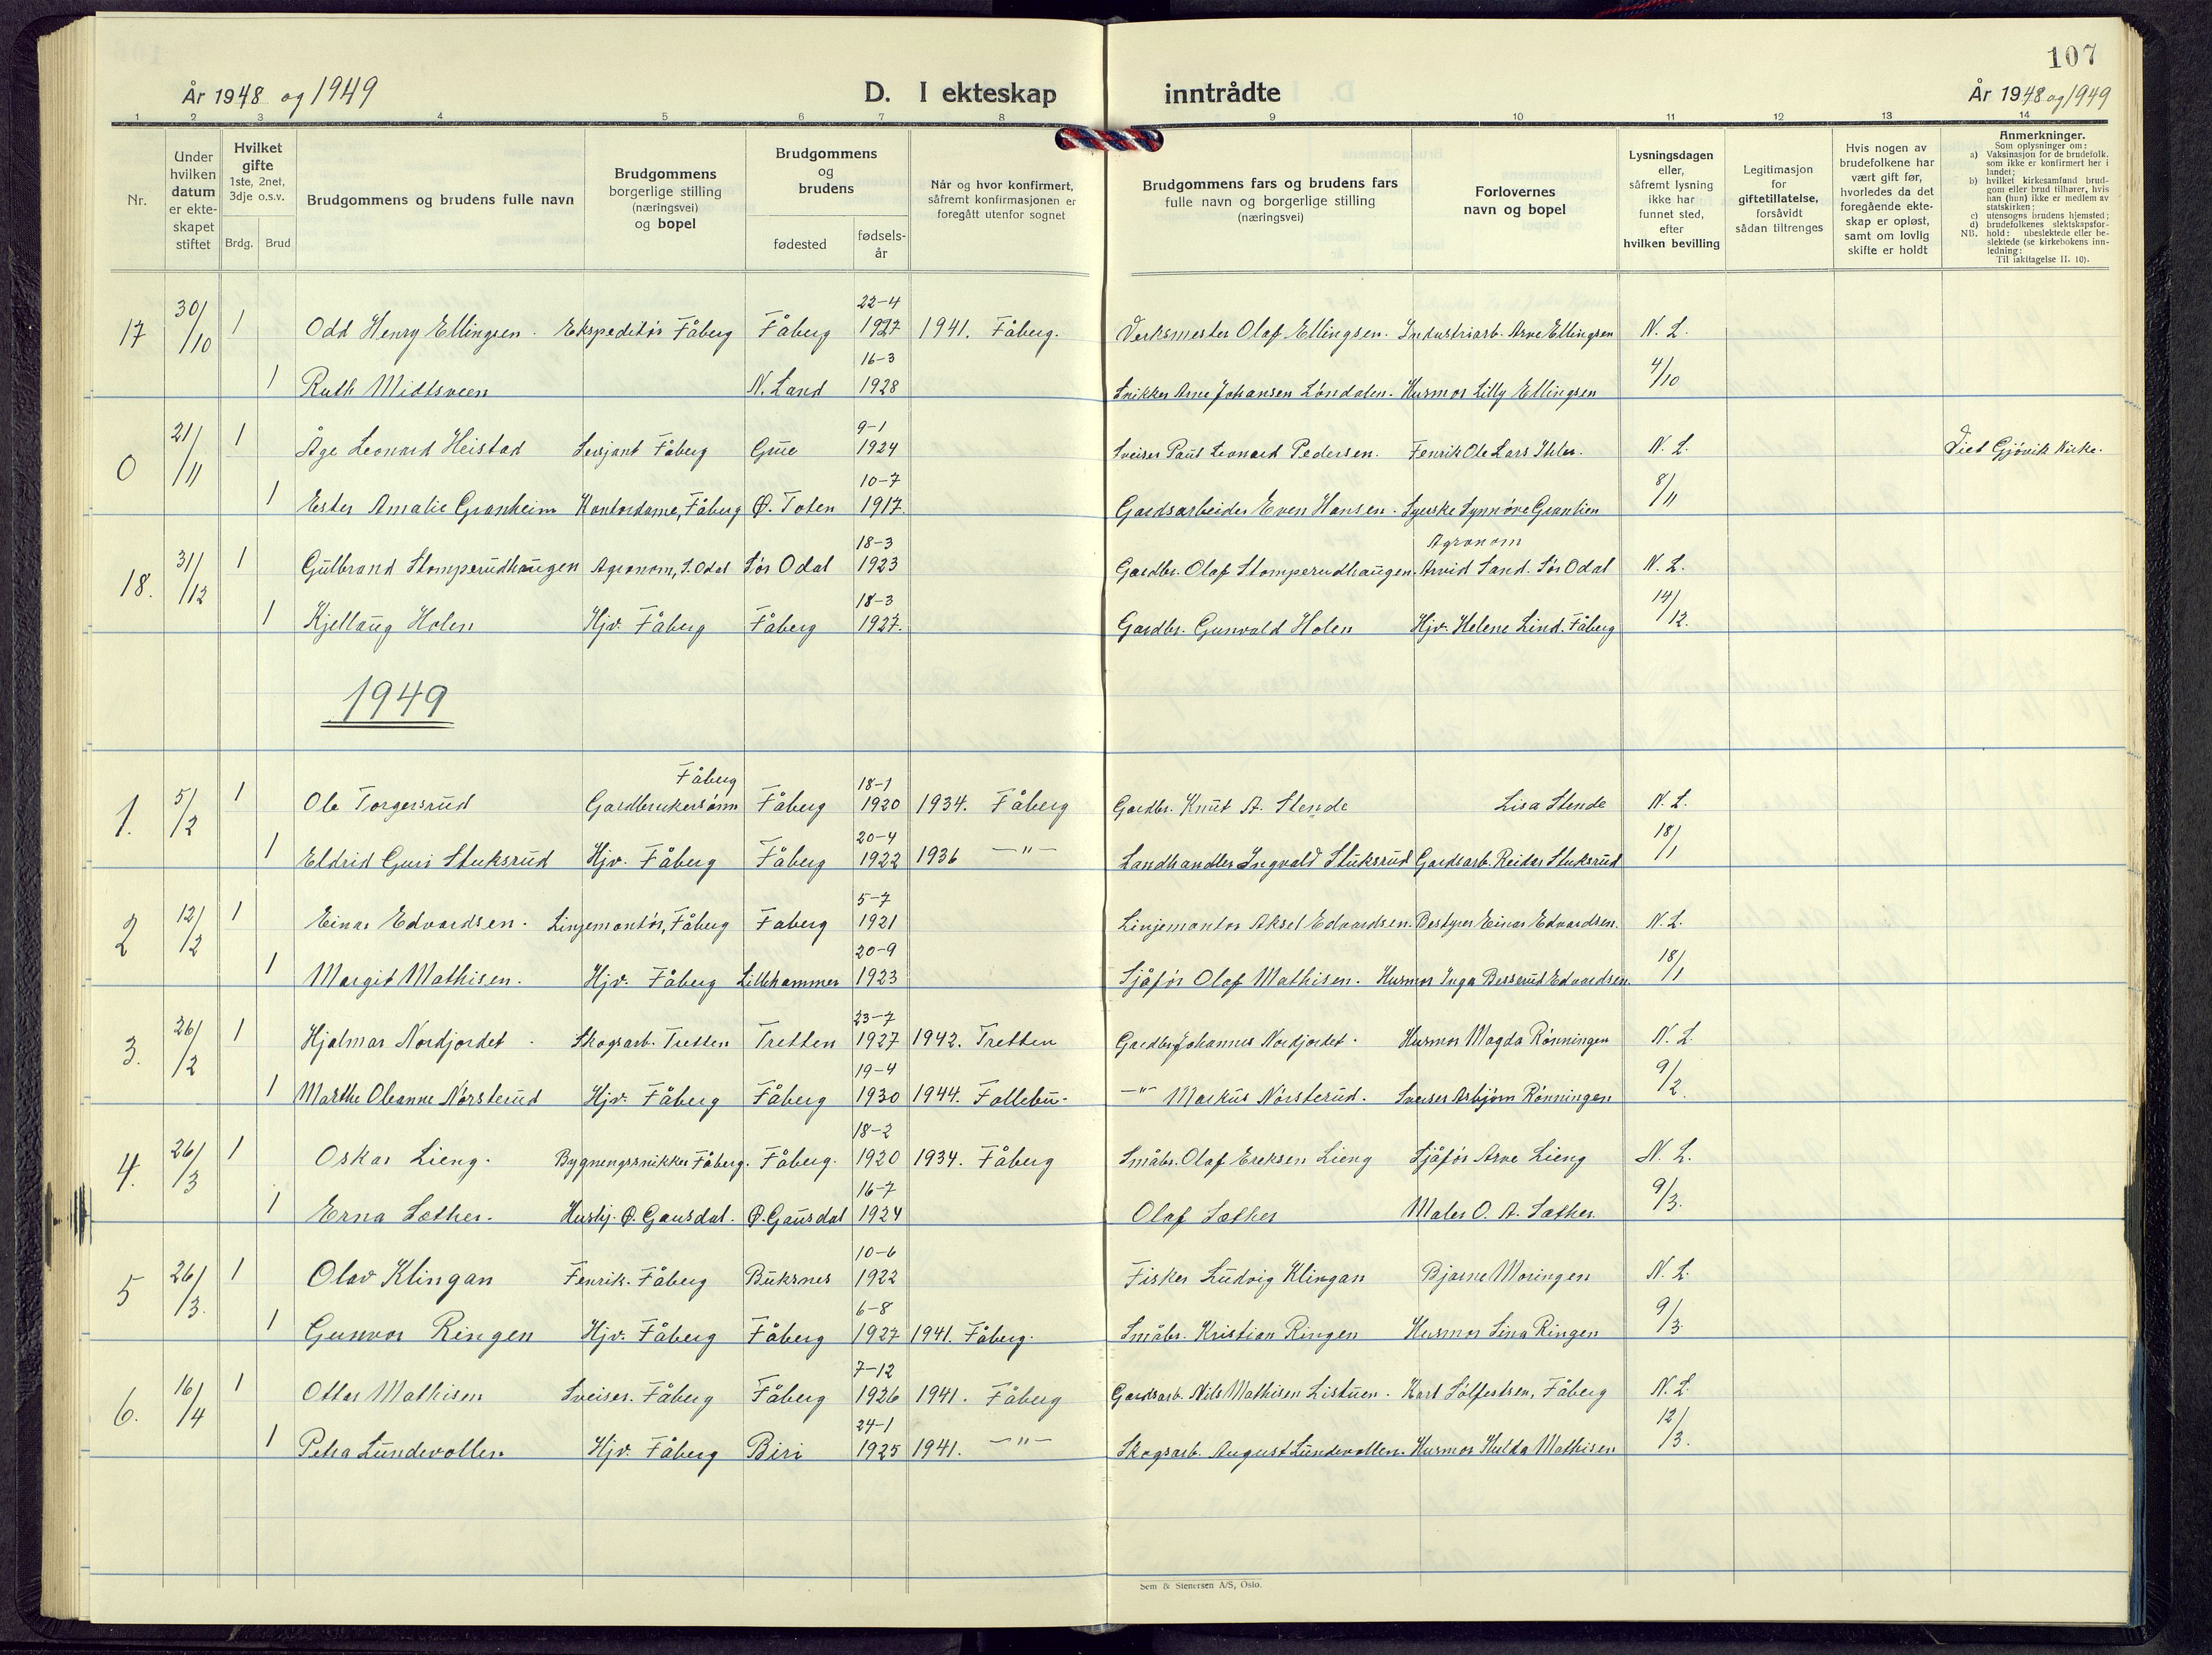 107
År 1948 og 1949
D. I ekteskap inntrådte
År 1948 og 1949
1 2 3 4 5 6 7 8 9 10 11 12 13 14
Nr.
Under hvilken datum er ekte-skapet stiftet
Hvilket gifte
1ste, 2net, 3dje o.s.v.
Brdg. Brud
Brudgommens og brudens fulle navn
Brudgommens borgerlige stilling (næringsvei) og bopel
Brudgommens og brudens
fødested
fødsels-år
Når og hvor konfirmert, såfremt konfirmasjonen er foregått utenfor sognet
Brudgommens fars og brudens fars fulle navn og borgerlige stilling (næringsvei)
Forlovernes navn og bopel
Lysningsdagen eller, såfremt lysning ikke har funnet sted, efter hvilken bevilling
Legitimasjon for giftetillatelse, forsåvidt sådan tiltrenges
Hvis nogen av brudefolkene har vært gift før, hvorledes da det foregående ekte-skap er opløst, samt om lovlig skifte er holdt
Anmerkninger.
Som oplysninger om:
a) Vaksinasjon for de brudefolk, som ikke er konfirmert her i landet;
b) hvilket kirkesamfund brud-gom eller brud tilhører, hvis han (hun) ikke er medlem av statskirken;
c) utensogns brudens hjemsted;
d) brudefolkenes slektskapsfor-hold: ubeslektede eller be-slektede (se kirkebokens inn-ledning:
NB.
Til iakttagelse II. 10).
17 30/10 1 Odd Henry Ellingsen. Ekspeditør Fåberg Fåberg 22-4 1927 1941. Fåberg. Verksmester Olaf Ellingsen. Industriarb. Arne Ellingsen N. L.
1 Ruth Midtsveen N. Land 16-3 1928 Snikker Arne Johansen Løndalen. Husmor Lilly Ellingsen 4/10
0 21/11 1 Åge Leonard Heistad Sersjant Fåberg Grue 9-1 1924 Sveiser Paul Leonard Pedersen. Fenrik Ole Lars N. L. Viet Gjøvik kirke.
1 Ester Amalie Granheim Kontordame, Fåberg Ø. Toten 10-7 1917. Gardsarbeider Even Hansen. Synnøve Granlien 8/11
18. 31/12 1 Gulbrand Stomperudhaugen Agronom, S. Odal Sør Odal 18-3 1923 Gardbr. Olaf Stomperudhaugen. Agronom Arvid Sand. Sør Odal N. L.
1 Kjellaug Holen Hjv. Fåberg Fåberg 18-3 1927. Gardbr. Gunvald Holen Hjv. Helene Lind. Fåberg 14/12.
1949
1. 5/2 1 Ole Torgersrud Gardbrukersønn Fåberg Fåberg 18-1 1920 1934. Fåberg Gardbr. Knut A. Stende Lisa Stende N. L.
1 Eldrid Guri Stuksrud Hjv. Fåberg Fåberg 20-4 1922 1936 —"— Landhandler Ingvald Stuksrud Gardsarb. Reidar Stuksrud 18/1
2 12/2 1 Einar Edvardsen. Linjemontør, Fåberg Faberg 5-7 1921 Linjemontør Aksel Edvardsen. Bestyrer Einar Edvardsen. N. L.
1 Margit Mathisen. Hjv. Fåberg Lillehammer 20-9 1923 Sjåfør Olaf Mathisen. Husmor Inga Edvardsen. 18/1
3. 26/2 1 Hjalmar Nordjordet. Skogsarb. Tretten Tretten 23-7 1927 1942. Tretten Gardbr. Johannes Nordjordet. Husmor Magda Rønningen N. L.
1 Marthe Oleanne Nørsterud Hjv. Fåberg Fåberg 19-4 1930 1944. Follebu. —"— Markus Nørsterud. Sveiser Asbjørn Rønningen 9/2.
4. 26/3 1 Oskar Lieng. Bygningssnikker Fåberg. Fåberg. 18-2 1920 1934. Fåberg Småbr. Olaf Ereksen Lieng Sjåfør Arve Lieng N. L.
1 Erna Sæther. Hushj. Ø. Gausdal. Ø. Gausdal 16-7 1924 Olaf Sæther Maler O. A. Sæther. 9/3.
5 26/3. 1 Olav Klingan Fenrik. Fåberg Buksnes 10-6 1922 Fisker Ludvig Klingan Bjarne Moringen N. L.
1 Gunvor Ringen Hjv. Fåberg Fåberg 6-8 1927 1941. Fåberg. Småbr. Kristian Ringen Husmor Lina Ringen 9/3.
6. 16/4 1 Ottar Mathisen Sveiser. Fåberg Fåberg 7-12 1926 1941. Fåberg Gardsarb. Nils Mathisen Listuen. Karl Sølfestsen, Fåberg N. L.
1 Petra Lundevollen Hjv. Fåberg Biri 24-1 1925 1941. —"— Skogsarb. August Lundevollen. Husmor Hulda Mathisen 12/3.
Sem & Stenersen A/S, Oslo.